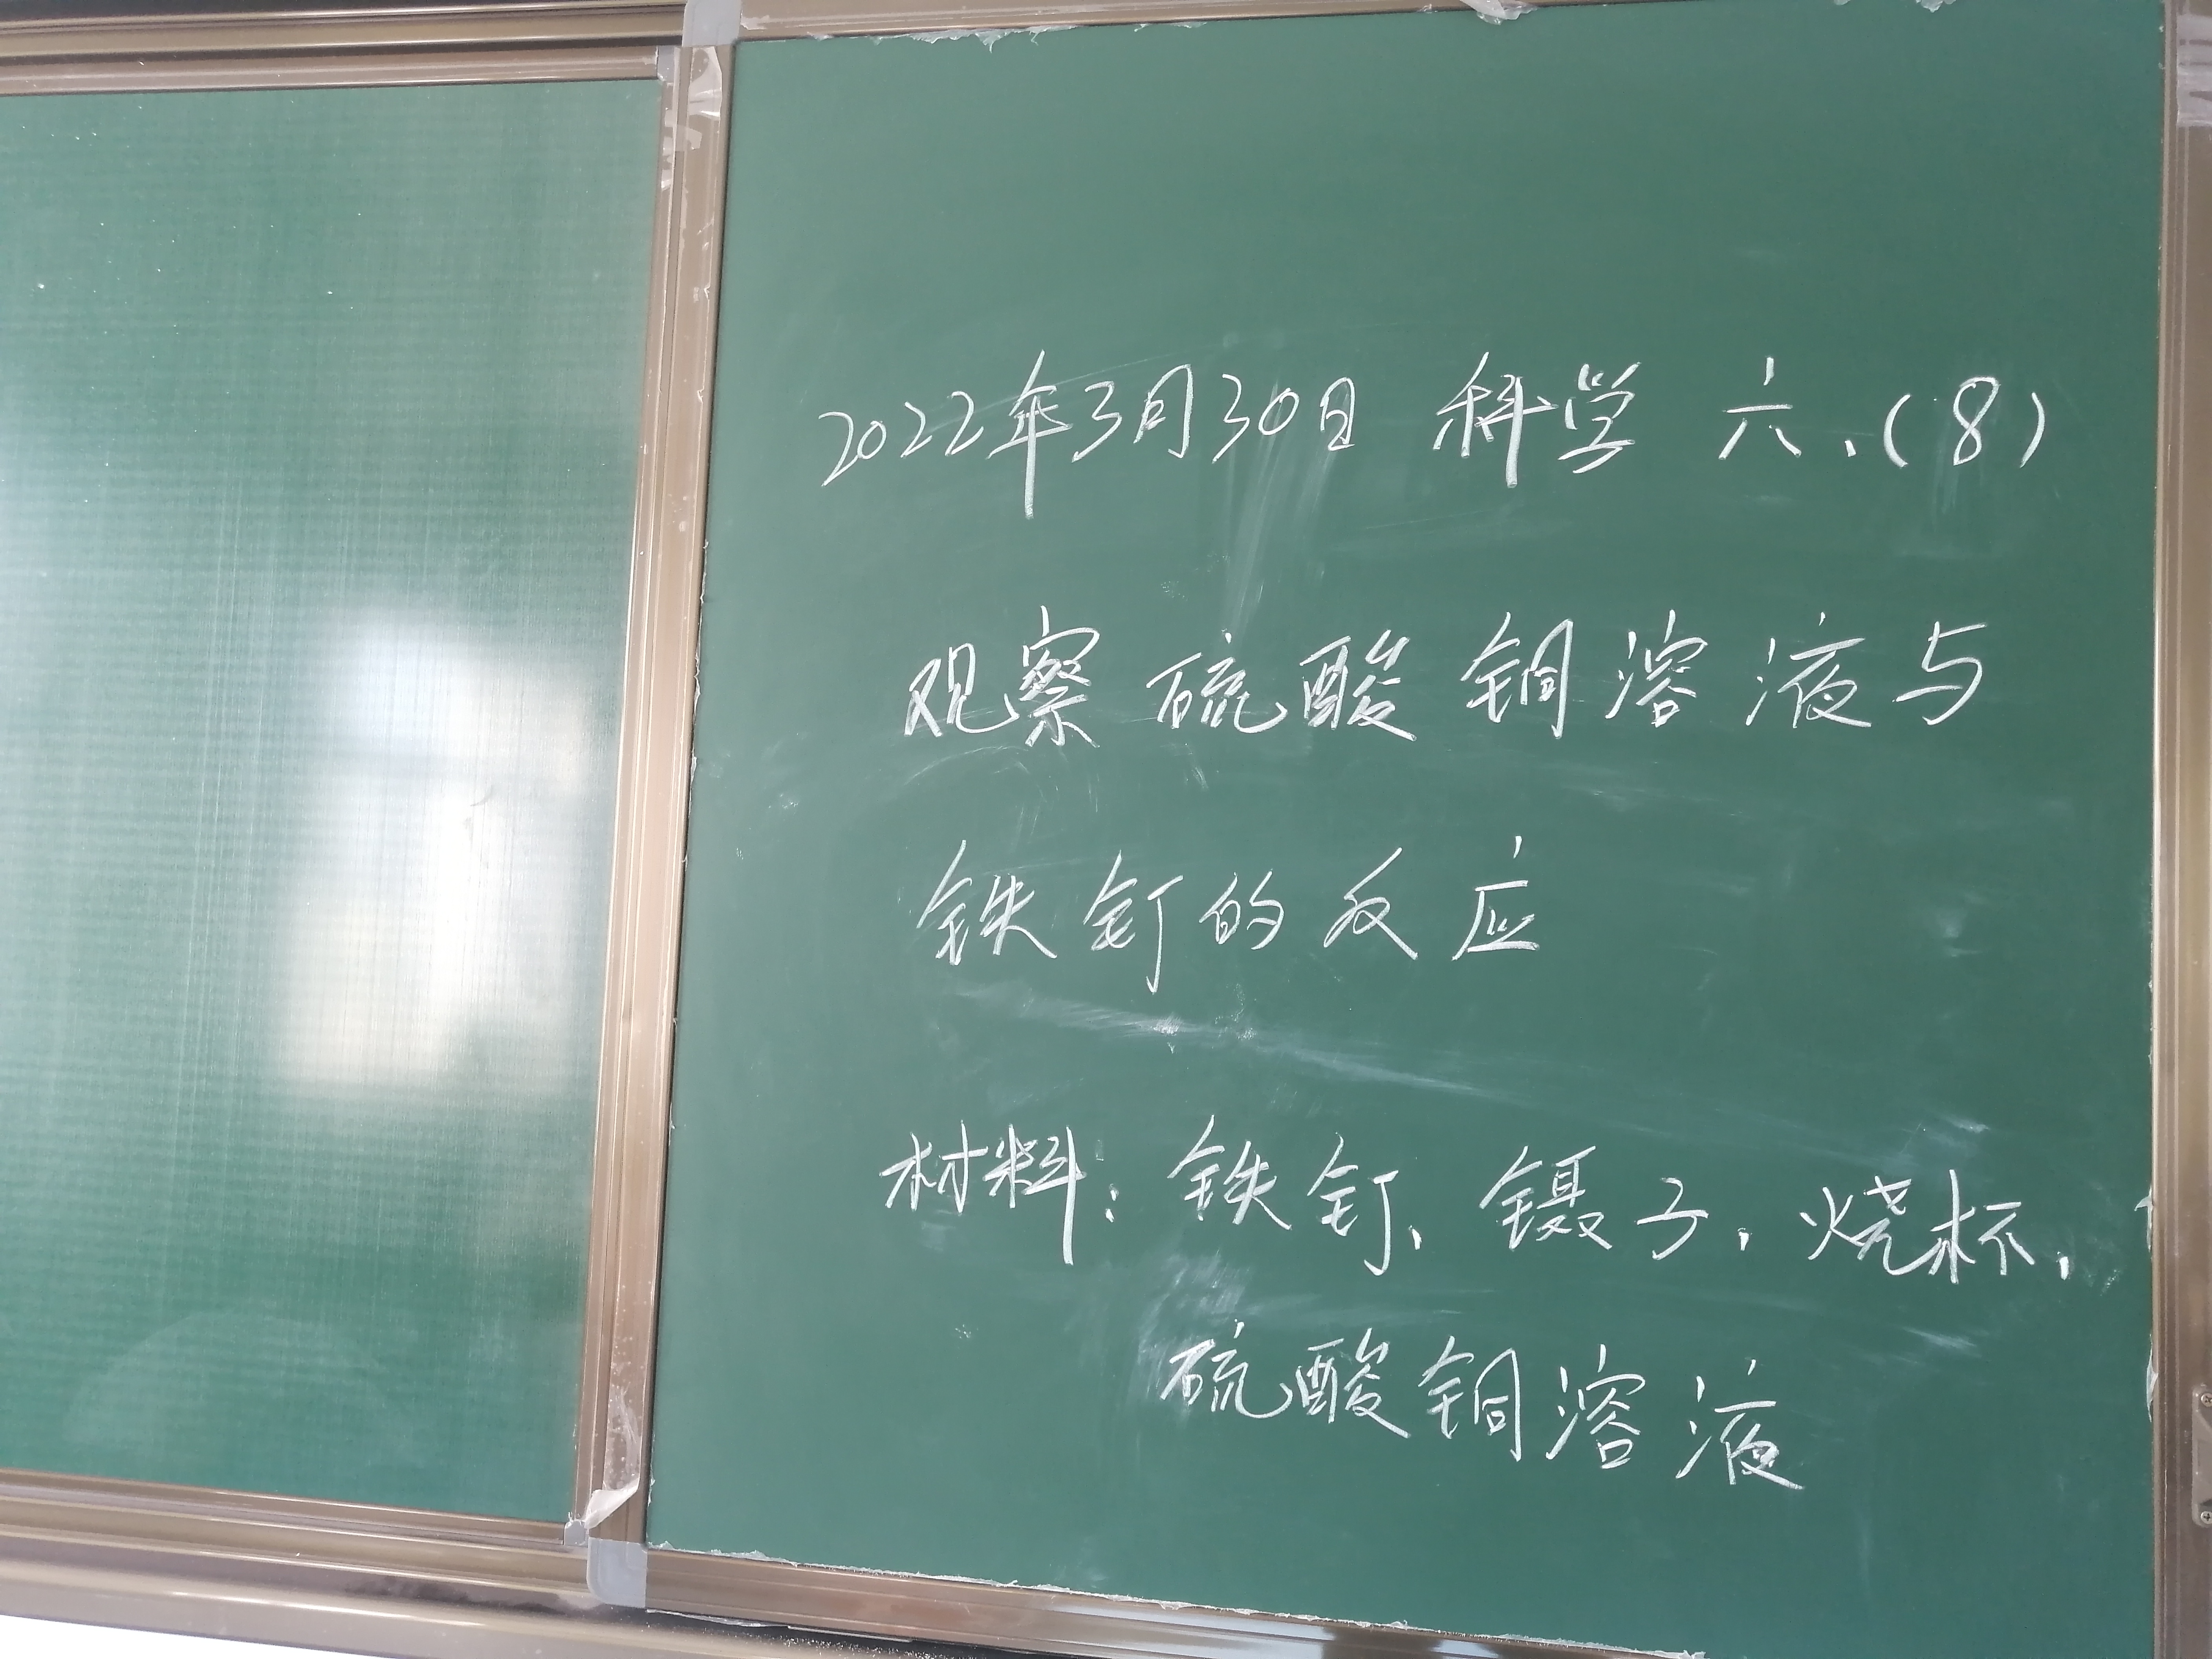 2022年3月30日 科学 六、(8)
观察硫酸铜溶液与
铁钉的反应
材料：铁钉、镊子、烧杯、
硫酸铜溶液